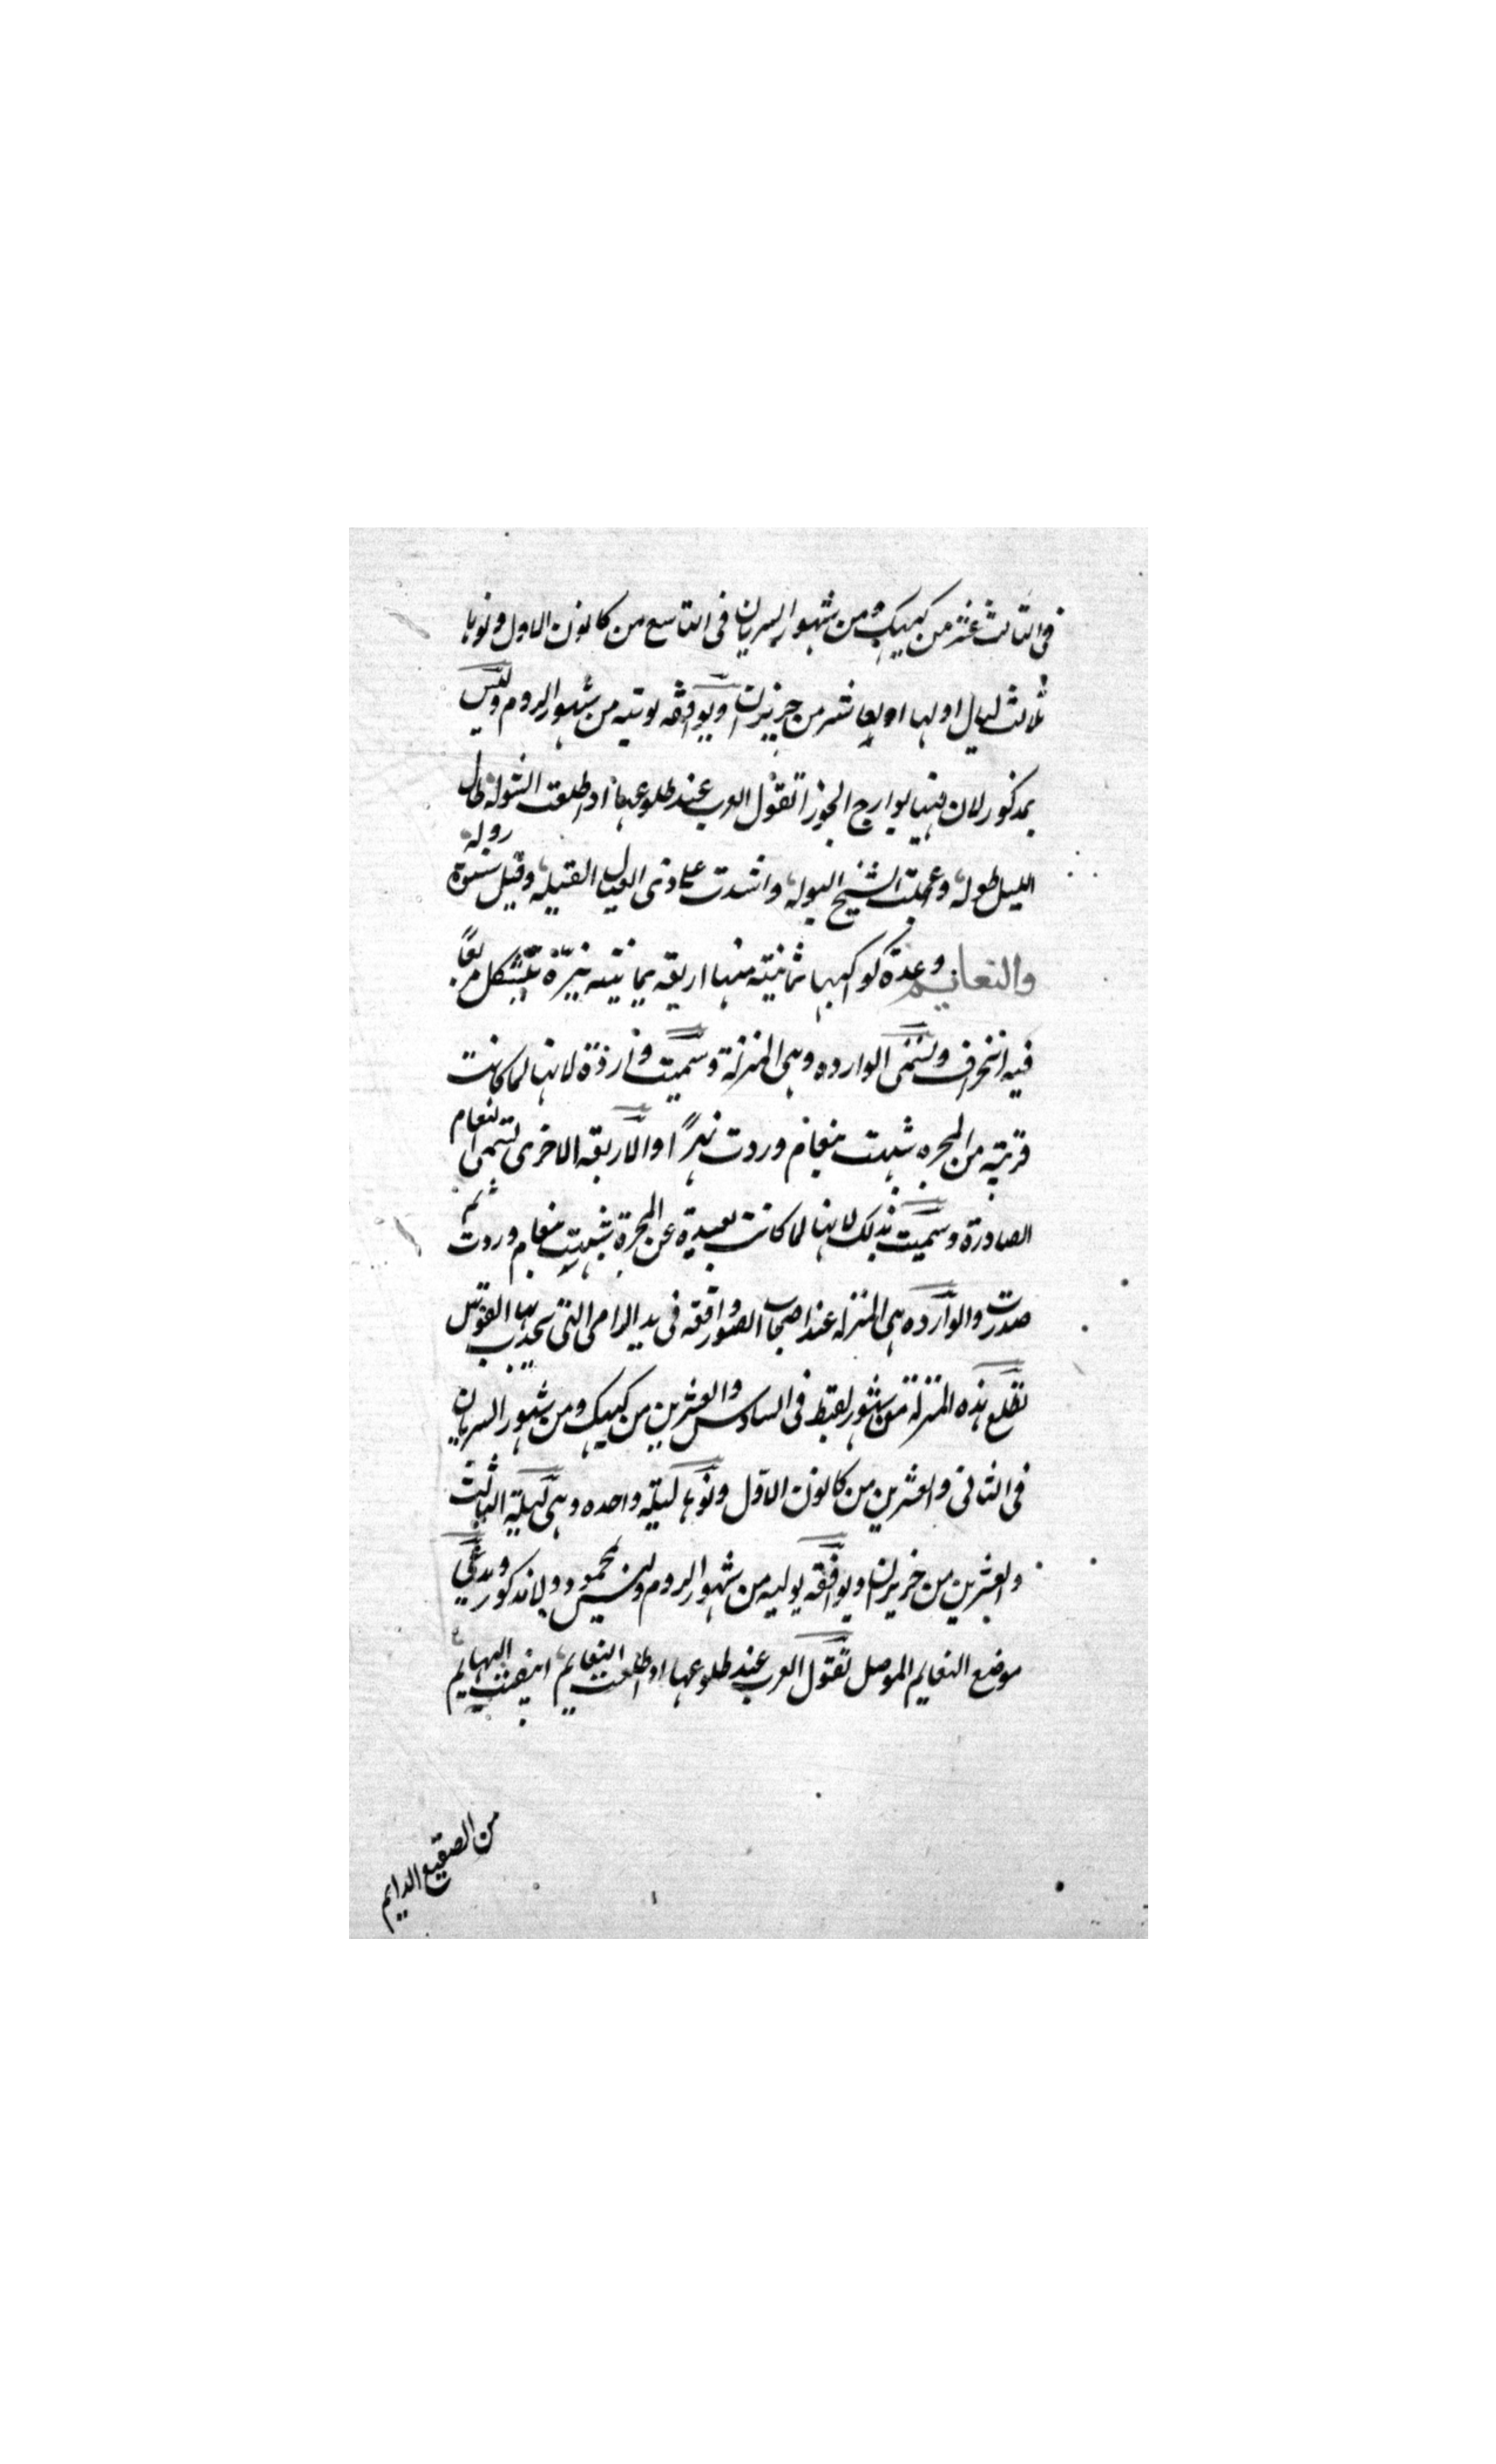 فى الثالث عشر من كيهك ومن شهور السريان فى التاسع من كانون الاول ونوءها
ثلاث ليال اولها اوبعا شر من حزيران ويوافقه يونيه من شهور الروم وليس
بمذكور لان فيها بوارج الجوزا تقول العرب عند طلوعها اذا طلعت الشولة طال
الليل طوله وعجلت الشيخ البوله واشتدت على ذى العيال القتيله وقيل شتوة زوله
والنعايم وعدة كواكبها ثمانية منها اربعه يمانيه نيرة بشكل مربعا
فيه انحراف وتسمى الوارده وهى المنزلة وسميت واردة لانها لما كانت
قريبه من المجره شبهت بنعام وردت نهرا والاربعه الاخرى تسمى النعام
الصادرة وسميت بذلك لانها لما كانت بعيدة عن المجرة شبهت بنعام وردت ثم
صدرت والوارده هى المنزله عند اصحاب الصور واقعه فى يد الرامى التى يجذب بها القوس
تطلع هذه المنزلة من شهور القبط فى السادس والعشرين من كيهك ومن شهور السريان
فى الثانى والعشرين من كانون الاول ونوءها ليله واحده وهى ليلة الثالث
والعشرين من حزيران ويوافقه يوليه من شهور الروم وليس محمود ولا مذكور ويدعى
موضع النعايم الموصل تقول العرب عند طلوعها اذا طلعت النعايم ابيضت البهايم
من الصقيع الدايم